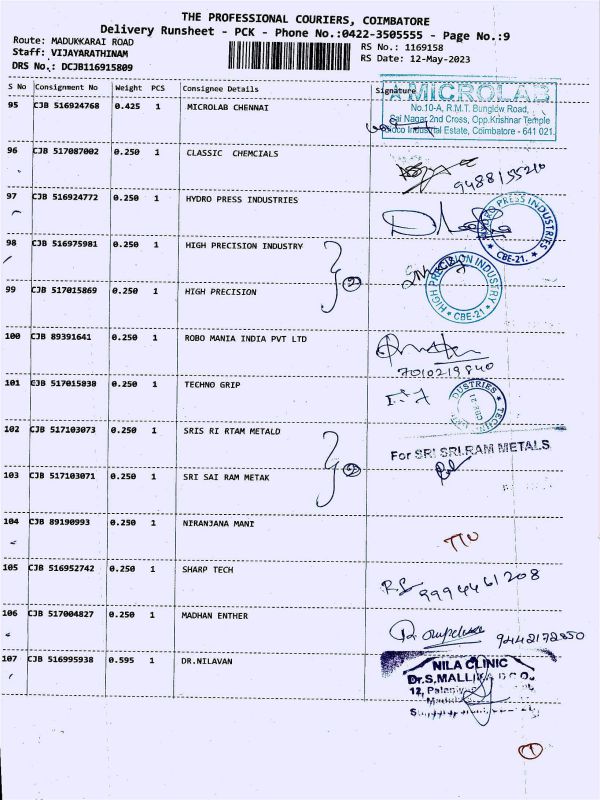 THE PROFESSIONAL COURIERS, COIMBATORE
Delivery Runsheet - PCK - Phone No.:0422-3505555 - Page No.:9
Route: MADUKKARAI ROAD
RS No.: 1169158
Staff: VIJAYARATHINAM
RS Date: 12-May-2023
DRS No.: DCJB116915809
S No Consignment No Weight PCS Consignee Details Signature
95 CJB 516924768 0.425 1 MICROLAB CHENNAI
MICROLAB
No.10-A, R.M.T. Bunglow Road,
Sai Nagar, 2nd Cross, Opp.Krishnar Temple
Industrial Estate, Coimbatore - 641 021.
96 CJB 517087002 0.250 1 CLASSIC CHEMCIALS
9488155210
97 CJB 516924772 0.250 1 HYDRO PRESS INDUSTRIES
HYDRO PRESS INDUSTRIES
* CBE-21. *
98 CJB 516975981 0.250 1 HIGH PRECISION INDUSTRY
2
HIGH PRECISION INDUSTRY
* CBE-21 *
99 CJB 517015869 0.250 1 HIGH PRECISION
100 CJB 89391641 0.250 1 ROBO MANIA INDIA PVT LTD
7010219840
101 CJB 517015838 0.250 1 TECHNO GRIP
102 CJB 517103073 0.250 1 SRIS RI RTAM METALD
For SRI SRI RAM METALS
2
103 CJB 517103071 0.250 1 SRI SAI RAM METAK
104 CJB 89190993 0.250 1 NIRANJANA MANI
105 CJB 516952742 0.250 1 SHARP TECH
9994461208
106 CJB 517004827 0.250 1 MADHAN ENTHER
107 CJB 516995938 0.595 1 DR.NILAVAN
NILA CLINIC
Dr.S.MALLIKA
12,